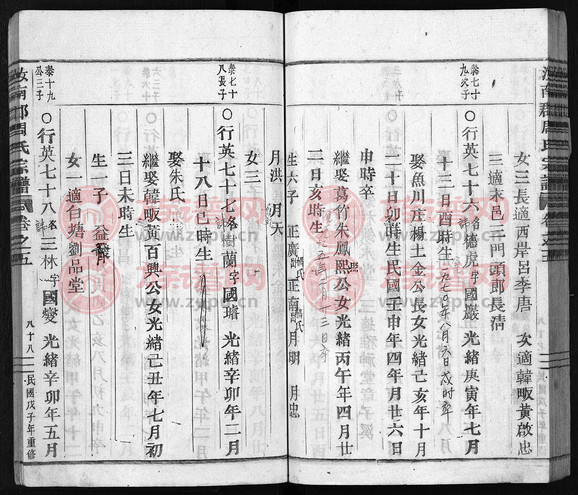 汝南郡周氏宗譜 卷之五
女三 長適西岸呂李唐 次適韓畈黃啟忠
三適本邑三門頭鄭長清
榮七十九次子
○行英七十六 名德虎 字國嚴 光緒庚寅年七月
十三日酉時生
娶魚川庄楊土金公長女光緒己亥年十月
二十日卯時生民國壬申年四月廿六日
申時卒
繼娶葛竹朱鳳熙公女光緒丙午年四月廿
二日亥時生
生六子 正廣 正南 月明 月忠
月洪 月天
女三
榮七十八長子
○行英七十七 名樹蘭 字國璿 光緒辛卯年二月
十八日巳時生
娶朱氏
繼娶韓畈黃百興公女光緒己丑年七月初
三日未時生
榮十九公三子
○行英七十八 名三林 字國變 光緒辛卯年五月
生一子 益
女一 適白塘劉品堂
汝南郡周氏宗譜 卷之五
八十八 民國戊子年重修